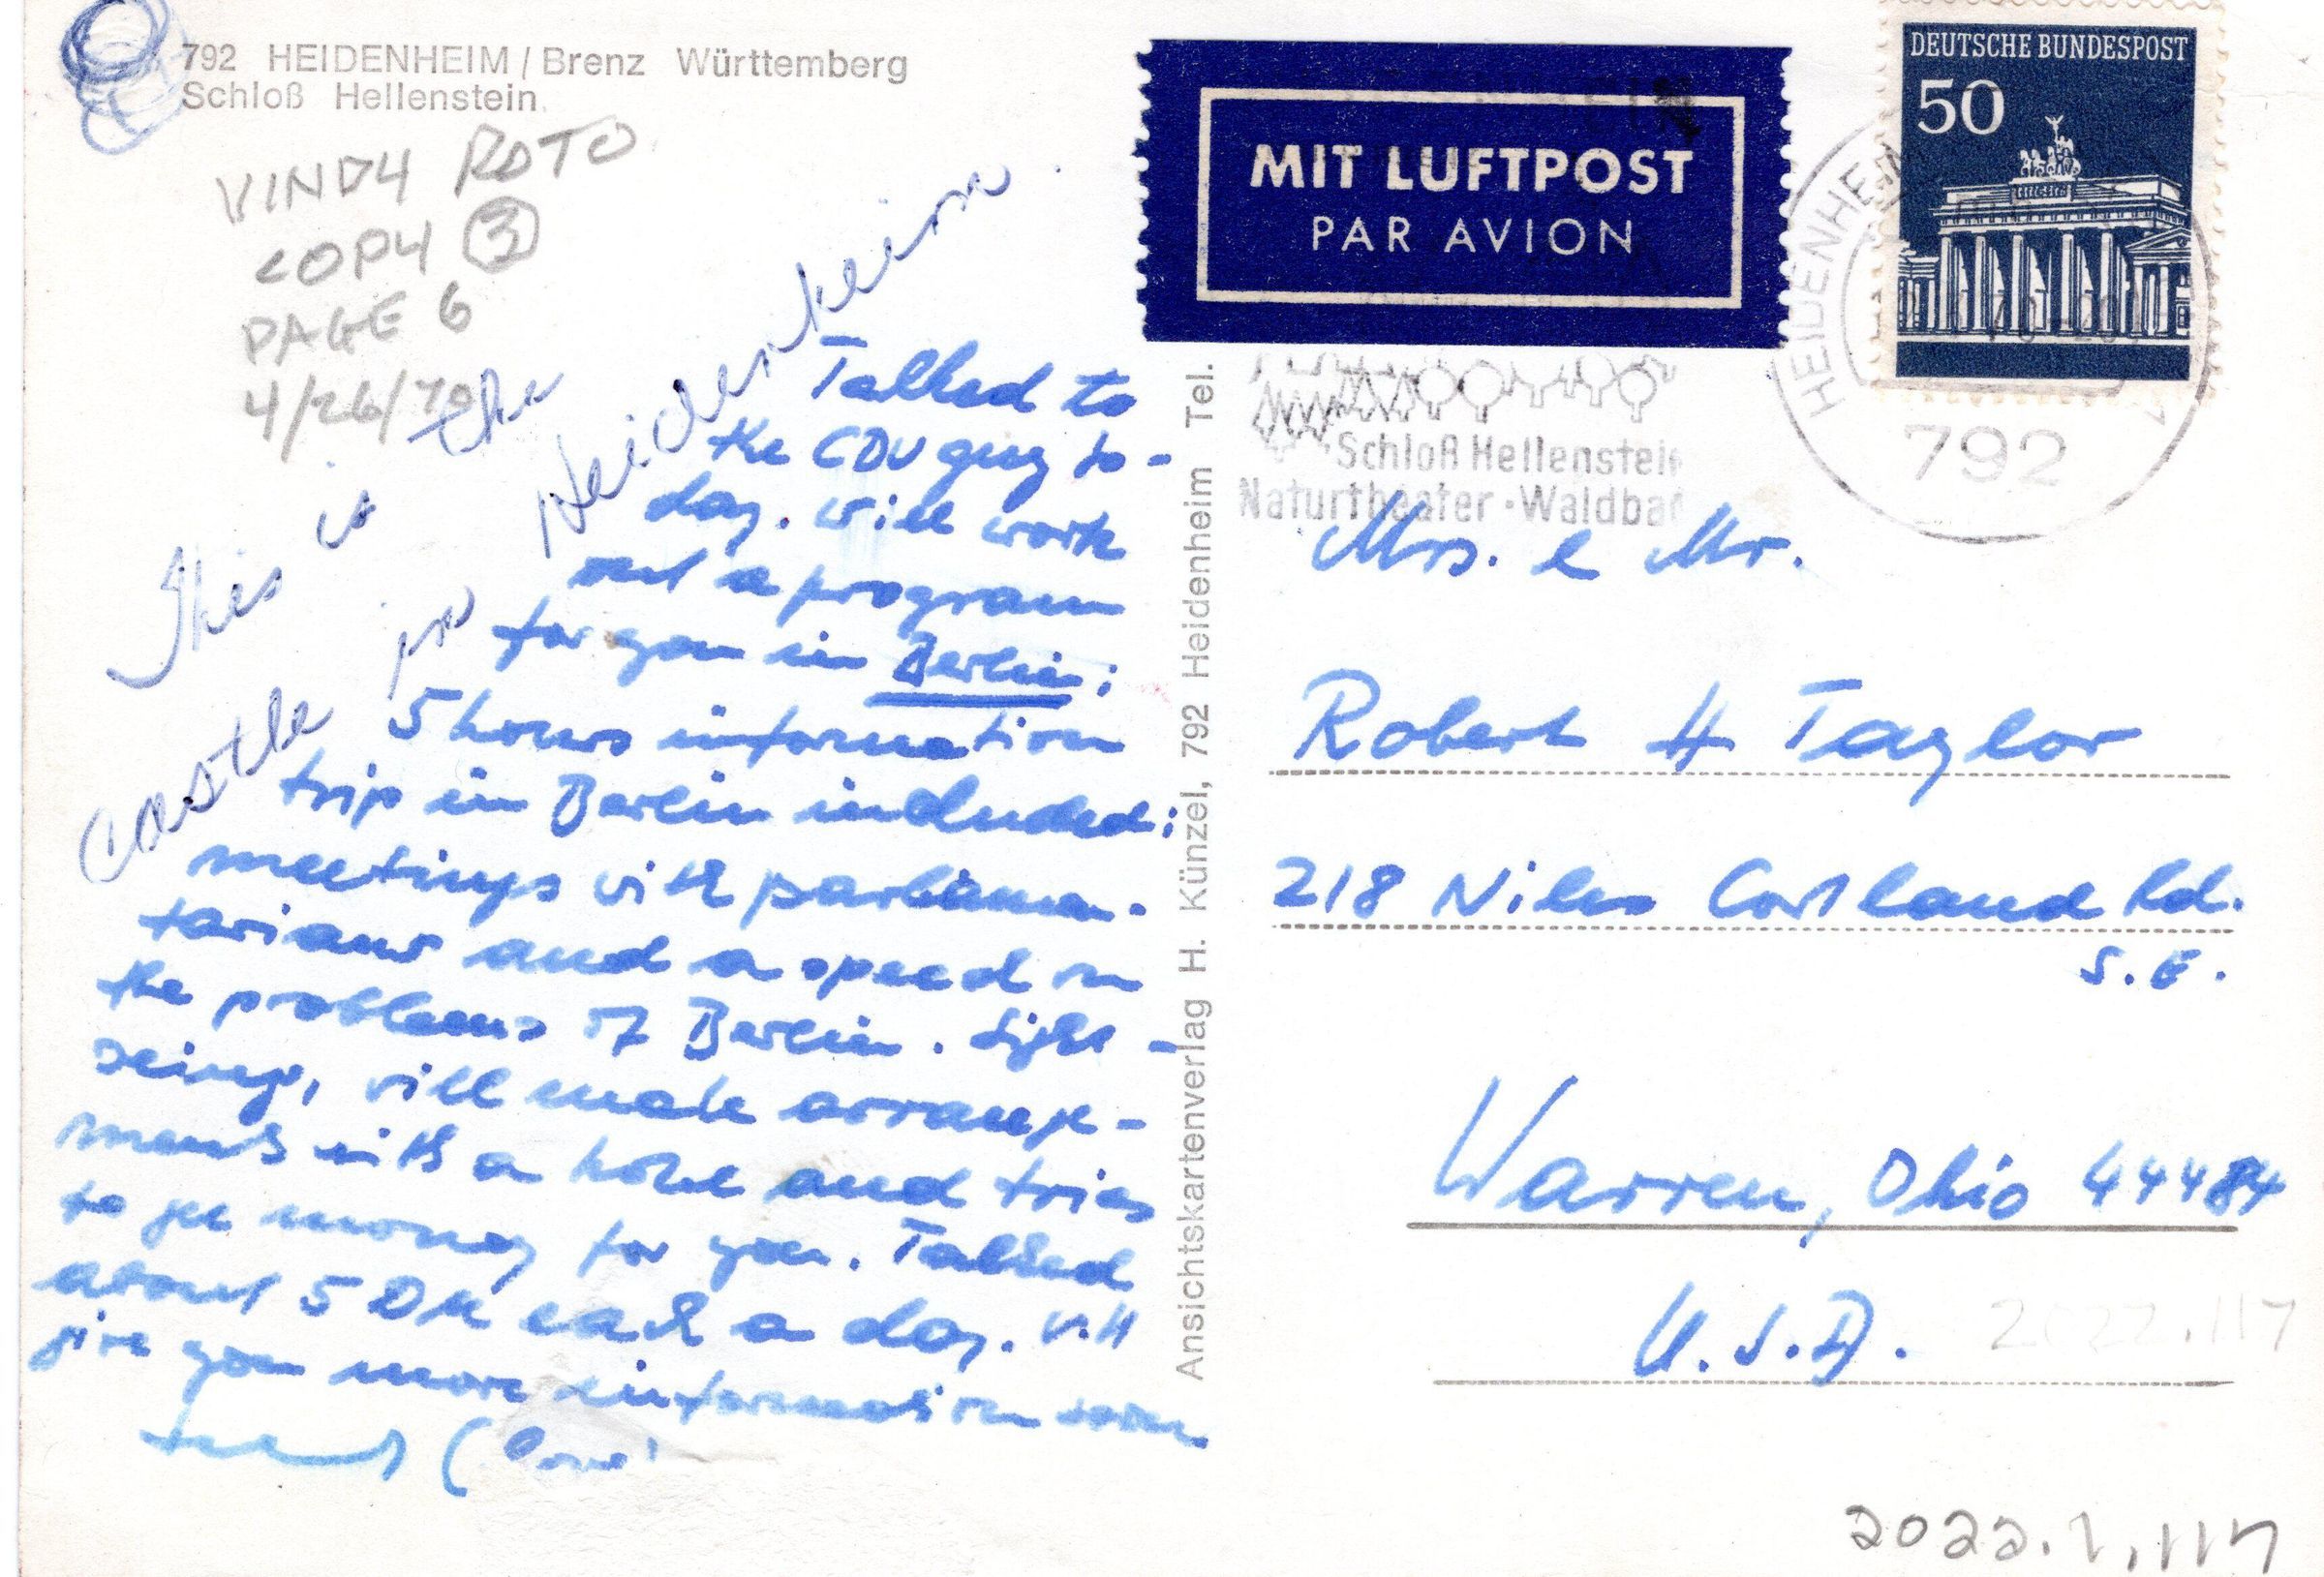 792 HEIDENHEIM / Brenz Württemberg
Schloß Hellenstein
VINDY ROTO
COPY 3
PAGE 6
4/26/70
This is the
Castle in Heidenheim.
Talked to
the CDU guy to-
day. Will work
out a program
for you in Berlin;
5 hours information
trip in Berlin included;
meetings with parliamen-
tarians and a speech on
the problems of Berlin. Sight-
seeing, will make arrange-
ments with a hotel and tries
to get money for you. Talked
about 5 DM each a day. Will
give you more information soon
Ansichtskartenverlag H. Künzel, 792 Heidenheim Tel.
MIT LUFTPOST
PAR AVION
DEUTSCHE BUNDESPOST
50
HEIDENHEIM
792
Schloß Hellenstein
Naturtheater · Waldbad
Mrs. & Mr.
Robert H Taylor
218 Niles Cortland Rd.
S.E.
Warren, Ohio 44484
U.S.A.
2022.117
2022.1.117